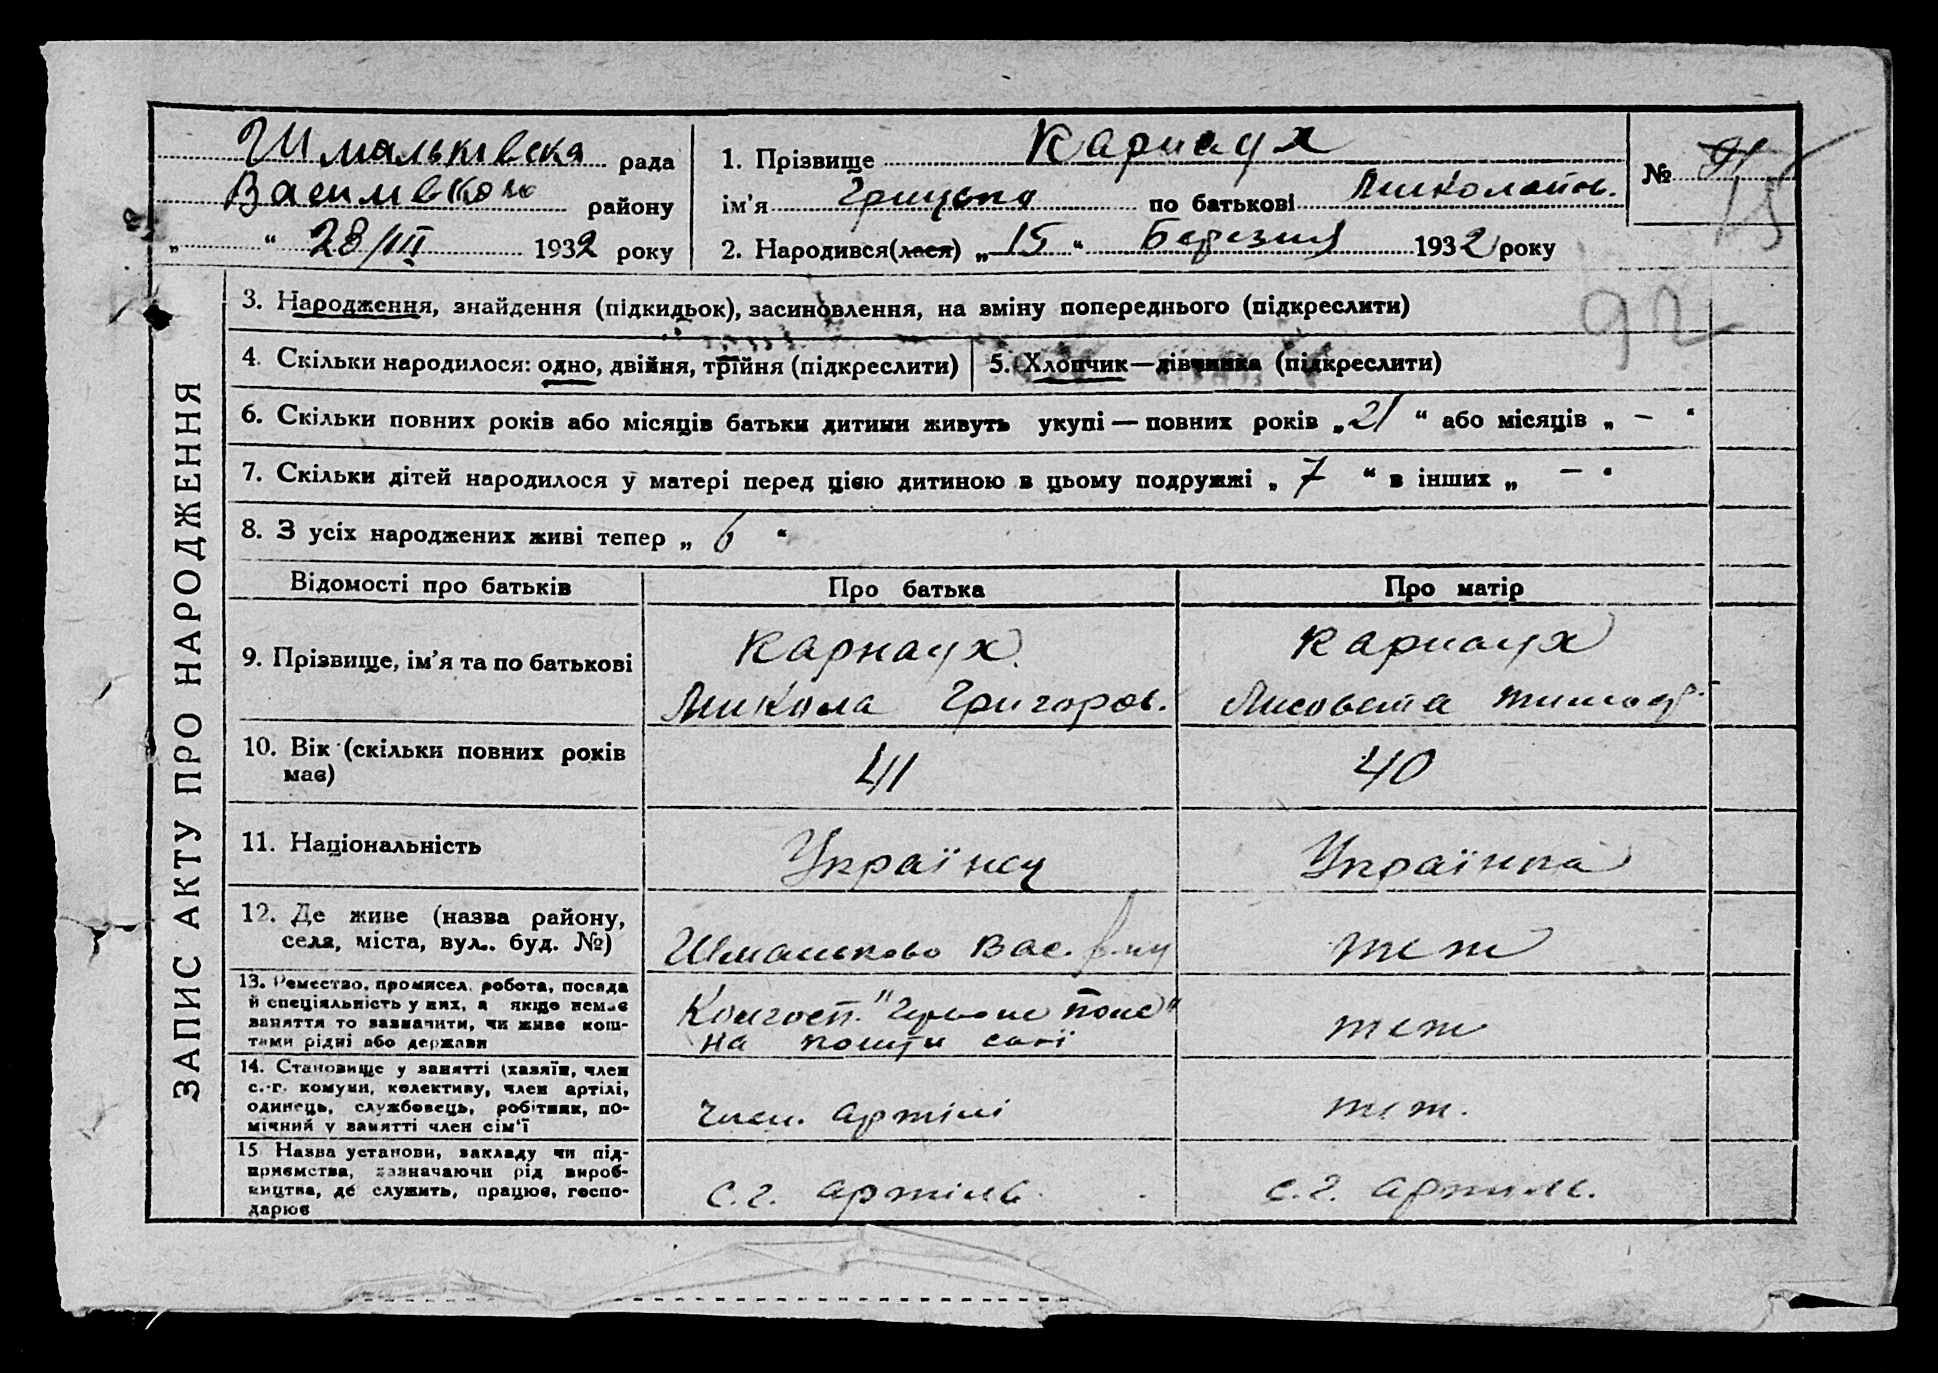 Шмальківська рада
Васильвком району
„ “ 28/III 1932 року
1. Прізвище Карнаух
ім'я Грицько по батькові Миколайов.
2. Народився(лася) „ 15 “ Березня 1932 року
№ 15
92
ЗАПИС АКТУ ПРО НАРОДЖЕННЯ
3. Народження, знайдення (підкидьок), засиновлення, на зміну попереднього (підкреслити)
4. Скільки народилося: одно, двійня, трійня (підкреслити)
5. Хлопчик—дівчинка (підкреслити)
6. Скільки повних років або місяців батьки дитини живуть укупі — повних років „ 21 “ або місяців „ – “
7. Скільки дітей народилося у матері перед цією дитиною в цьому подружжі „ 7 “ в інших „ – “
8. З усіх народжених живі тепер „ 6 “
Відомості про батьків Про батька Про матір
9. Прізвище, ім'я та по батькові
Карнаух
Микола Григоров.
Карнаух
Лисовета Тимоф.
10. Вік (скільки повних років
має)
41
40
11. Національність
Українец
Українка
12. Де живе (назва району,
села, міста, вул.. буд. №)
Шмальково Вас. р-ну
теж
13. Ремество, промисел, робота, посада
й спеціяльність у них, а якщо немає
заняття то зазначити, чи живе кош-
тами рідні або держави
Колгосп. "Червоне Поле"
на
теж
14. Становище у занятті (хазяїн, член
с.-г. комуни, колективу, член артілі,
одинець, службовець, робітник, по-
мічний у занятті член сім'ї
член. артілі
теж.
15 Назва установи, закладу чи під-
приємства, зазначаючи рід вироб-
ництва, де служить, працює, госпо-
дарює
с.г. артіль
с.г. артиль.